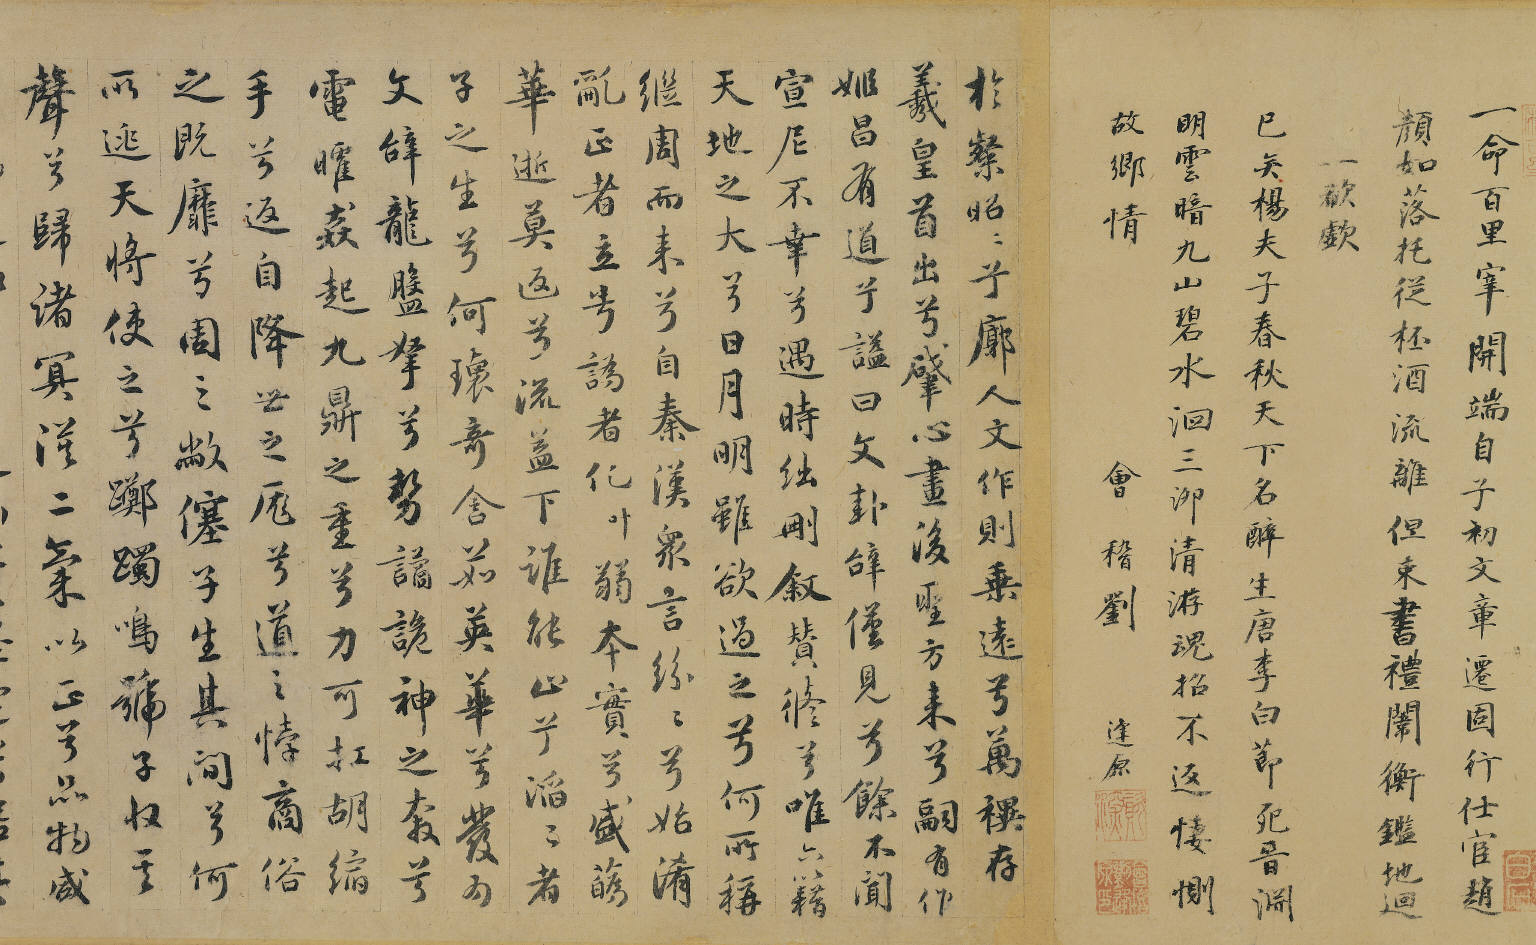 一命百里宰開端自子初文章遷固行仕宦趙
顏如落托從杯酒流離但束書禮闈衡鑑地迴
一欷歔
已矣楊夫子春秋天下名醉生唐李白節死晉淵
明雲暗九山碧水洄三泖清游魂招不返悽惻
故鄉情
會稽劉
逢原
於粲昭〻兮廓人文作則乗遠兮萬禩存
羲皇首出兮肇心畫後聖方来兮嗣有作
姬昌有道兮謚曰文卦辭僅見兮餘不聞
宣尼不幸兮遇時絀刪敘贊修兮唯六籍
天地之大兮日月明雖欲過之兮何所稱
繼周而来兮自秦漢衆言紛〻兮始淆
亂正者立兮譌者化叶翦本實兮盛蘤
華逝莫返兮流益下誰能止兮滔〻者
子之生兮何瓌奇含茹英華兮發為
文辭龍盤拏兮勢譎詭神之教兮
電曜焱起九鼎之重兮力可扛胡縮
手兮返自降世之尨兮道之悖商俗
之既靡兮周之敝僿子生其間兮何
所逃天將使之兮躑躅鳴號子收其
聲兮歸諸冥漠二氣以正兮品物咸